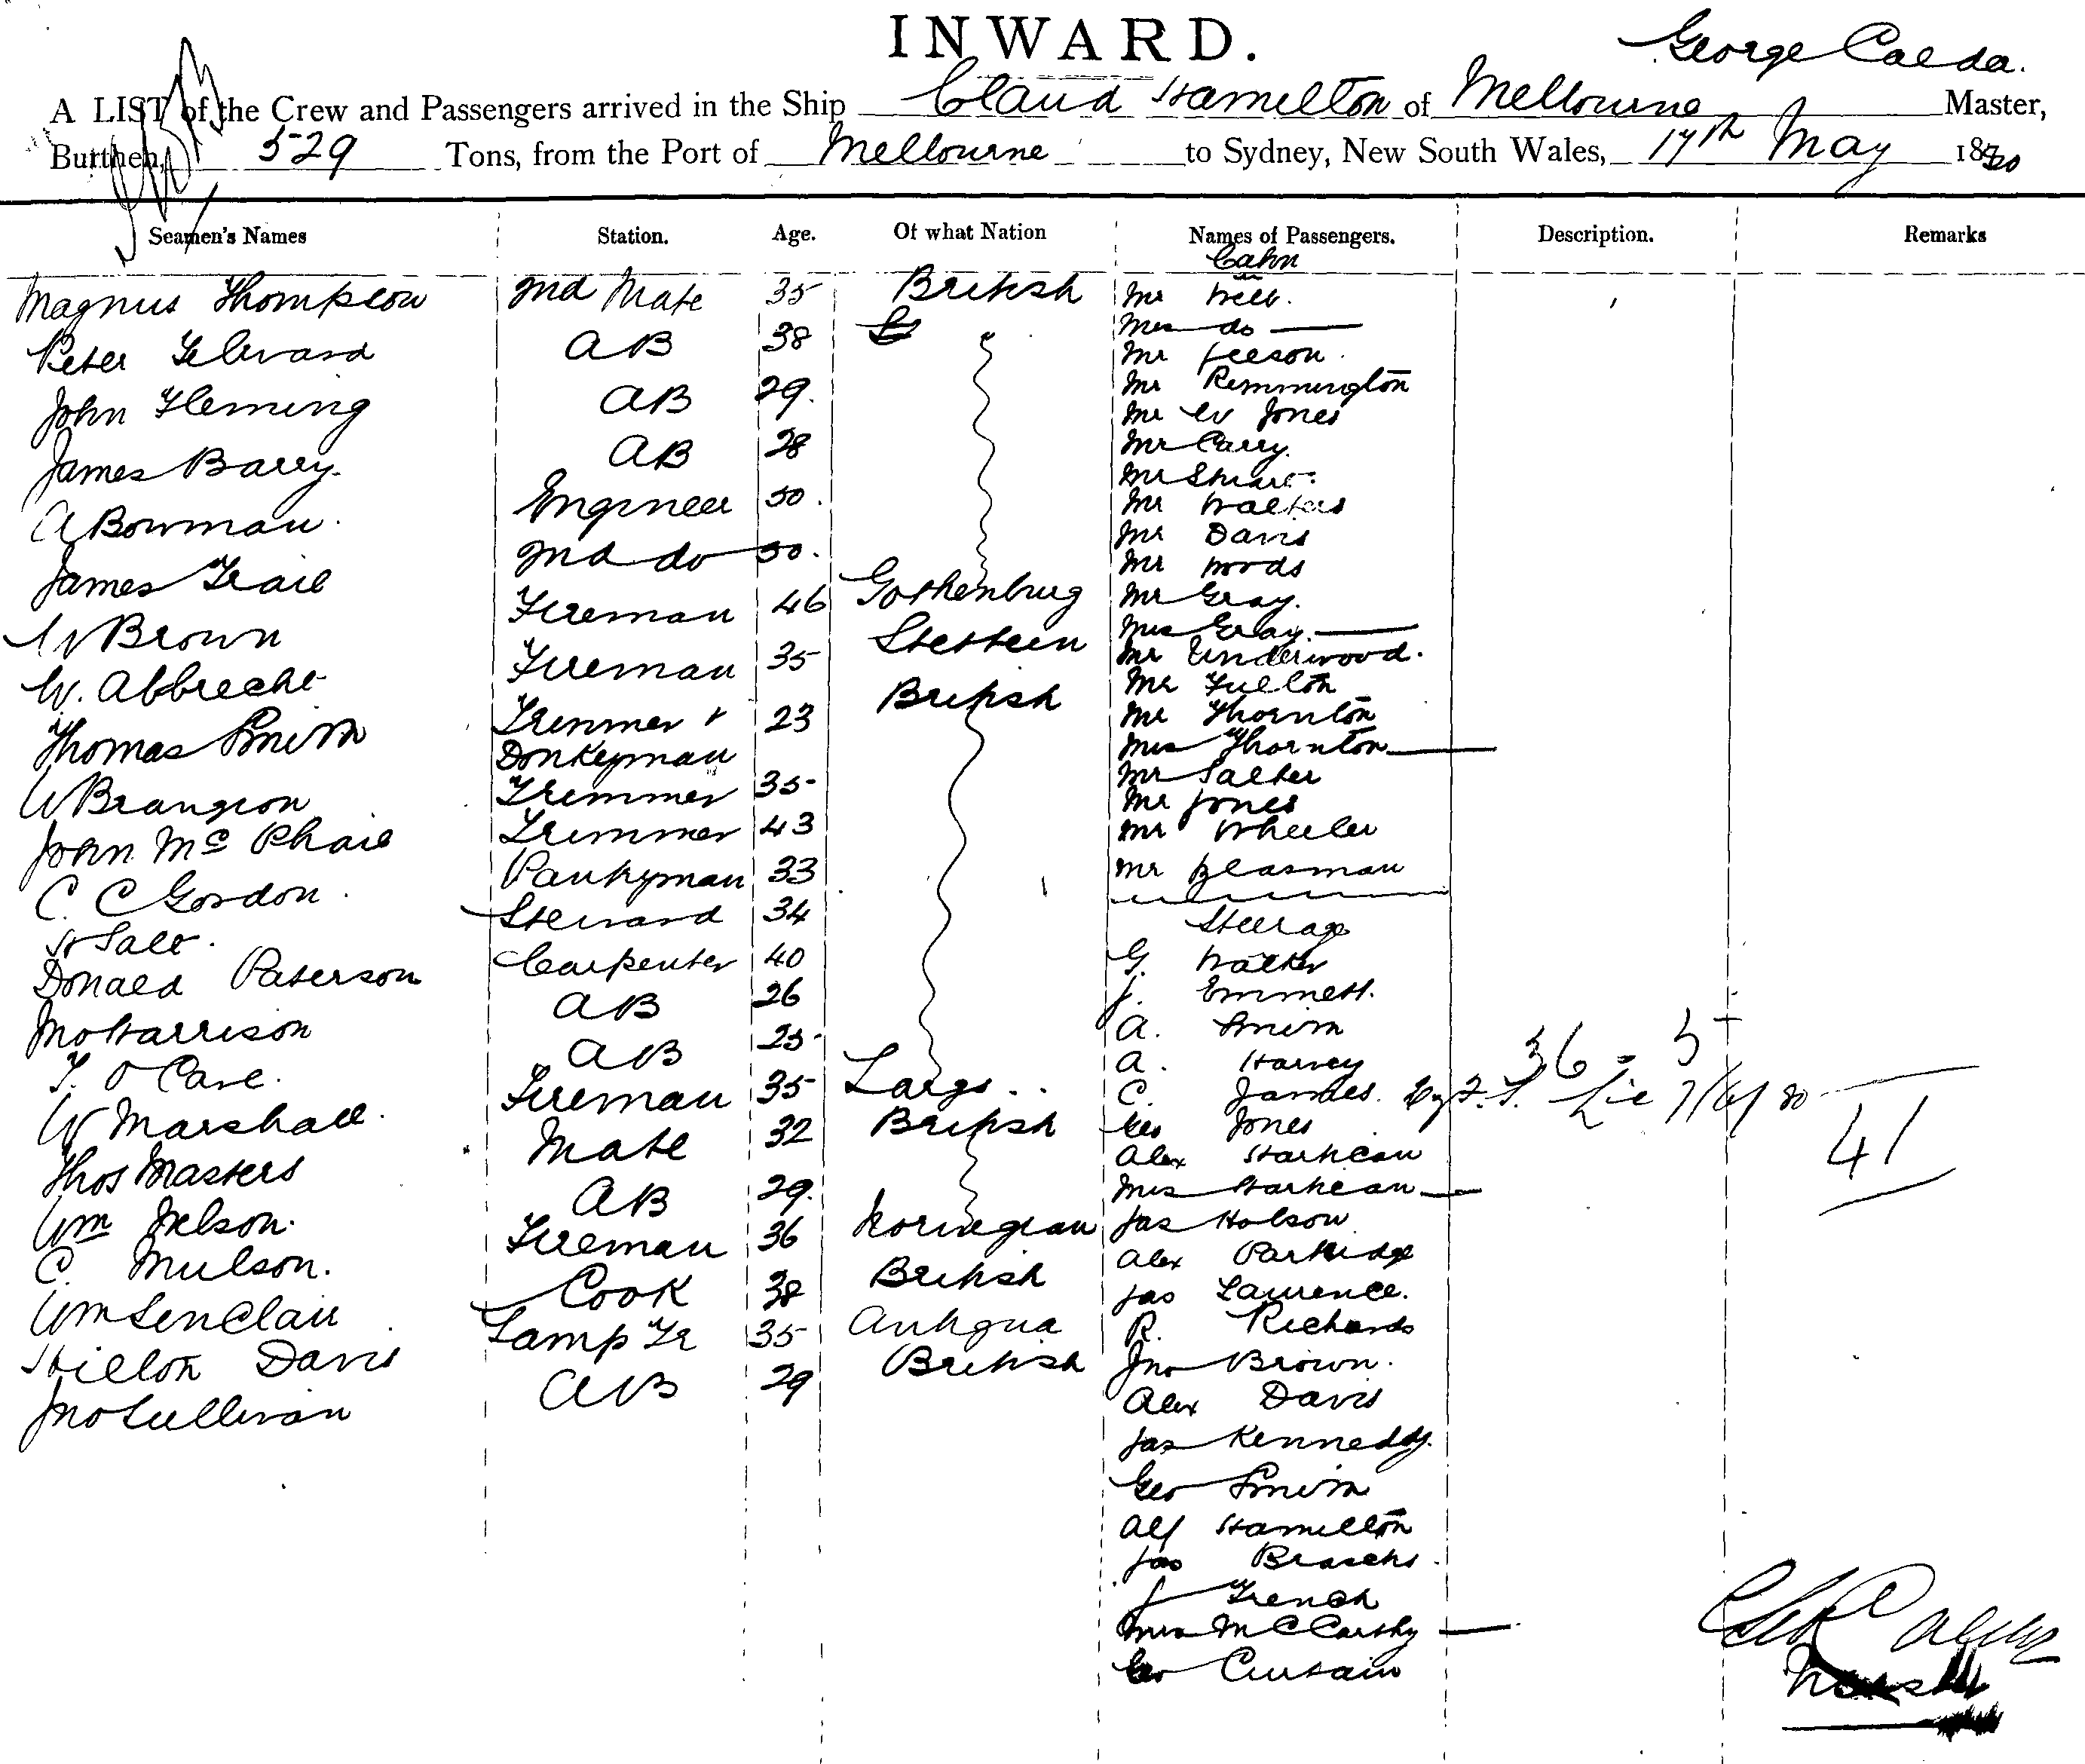 INWARD.
George Calda.
A LIST of the Crew and Passengers arrived in the Ship Claud Hamilton of Melbourne Master,
Burthen, 529 Tons, from the Port of Melbourne to Sydney, New South Wales, 17th May 1880
Seamen's Names Station. Age. Of what Nation Names of Passengers. Description. Remarks
Cabn
Magnus Thompson 2nd Mate 35 British Mr Webb.
Mrs do
Peter AB 38 Mr Leeson.
Mr Remmington
John Fleming AB 29. Mr W Jones
James Barry. AB 28 Mr Carry.
Mr Stuart.
A Bowman. Engineer 50. Mr Walters
Mr Davis
James 2nd do 50. Mr Woods
W Brown Fireman 46 Gothenburg Mr Gray.
Mrs Gray.
W. Abbrecht Fireman 35 Stettein Mr Underwood.
Mr Fulton
Thomas Smith Trimmer & 23 British Mr Thornton
Donkeyman Mrs Thornton
W Brangion Trimmer 35 Mr Salter
Mr Jones
John McPhail Trimmer 43 Mr Wheeler
C. C Gordon. Pantryman 33 Mr Glasman
H Salt. Steward 34 Steerage
Donald Paterson Carpenter 40 G. Walker
Jno Harrison AB 26 J. Emmett.
A. Smith
T. O Care. AB 25 A. Harvey
36 - 5
W Marshall. Fireman 35 Largs.. C. James.
Thos Masters Mate 32 British Geo Jones
41
Alex Harkean
Wm Nelson. AB 29. Mrs Harkean
C. Mulson. Fireman 36 Norwegian Jas Hobson
Alex Partridge
Wm Senclair Cook 38 British Jas Laurence.
Hillon Davis Lamp Tr 35 Antigua R. Richards
Jno Sullivan AB 29 British Jno Brown.
Alex Davis
Jas Kennedy.
Geo Smith
Alf Hamilton
Jas
J French
Mrs McCarthy
Geo Curtain
Master